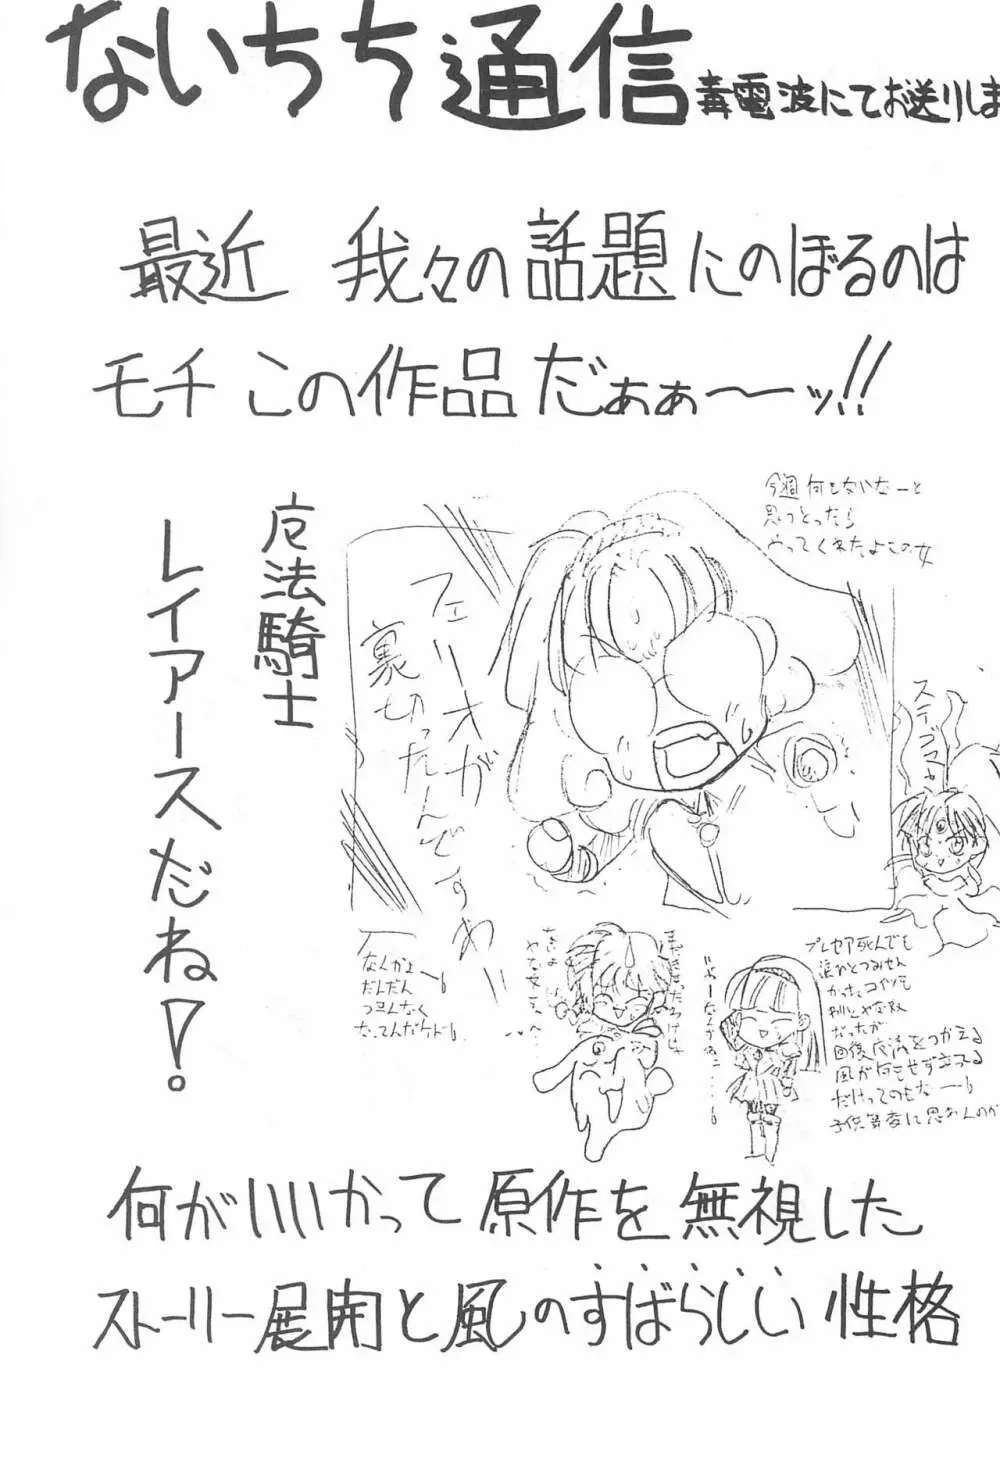 ないちち通信 毒電波にてお送りしま
最近 我々の話題にのぼるのは
モチ この作品だぁぁ〜ーッ!!
广法騎士
レイアースだね!
今週何もないなーと
思っとったら
やってくれたよこの女
フェーオが
裏切ったんですわー
ステゴマ
なんかよー
だんだん
つまんなく
なってんだケドー
プレセア死んでも
涙ひとつみせん
かったコイツも
回復广法をつかえる
風が何もせず立ってる
だけってのもなー
何がいいかって原作を無視した
ストーリー展開と風のすばらしい性格